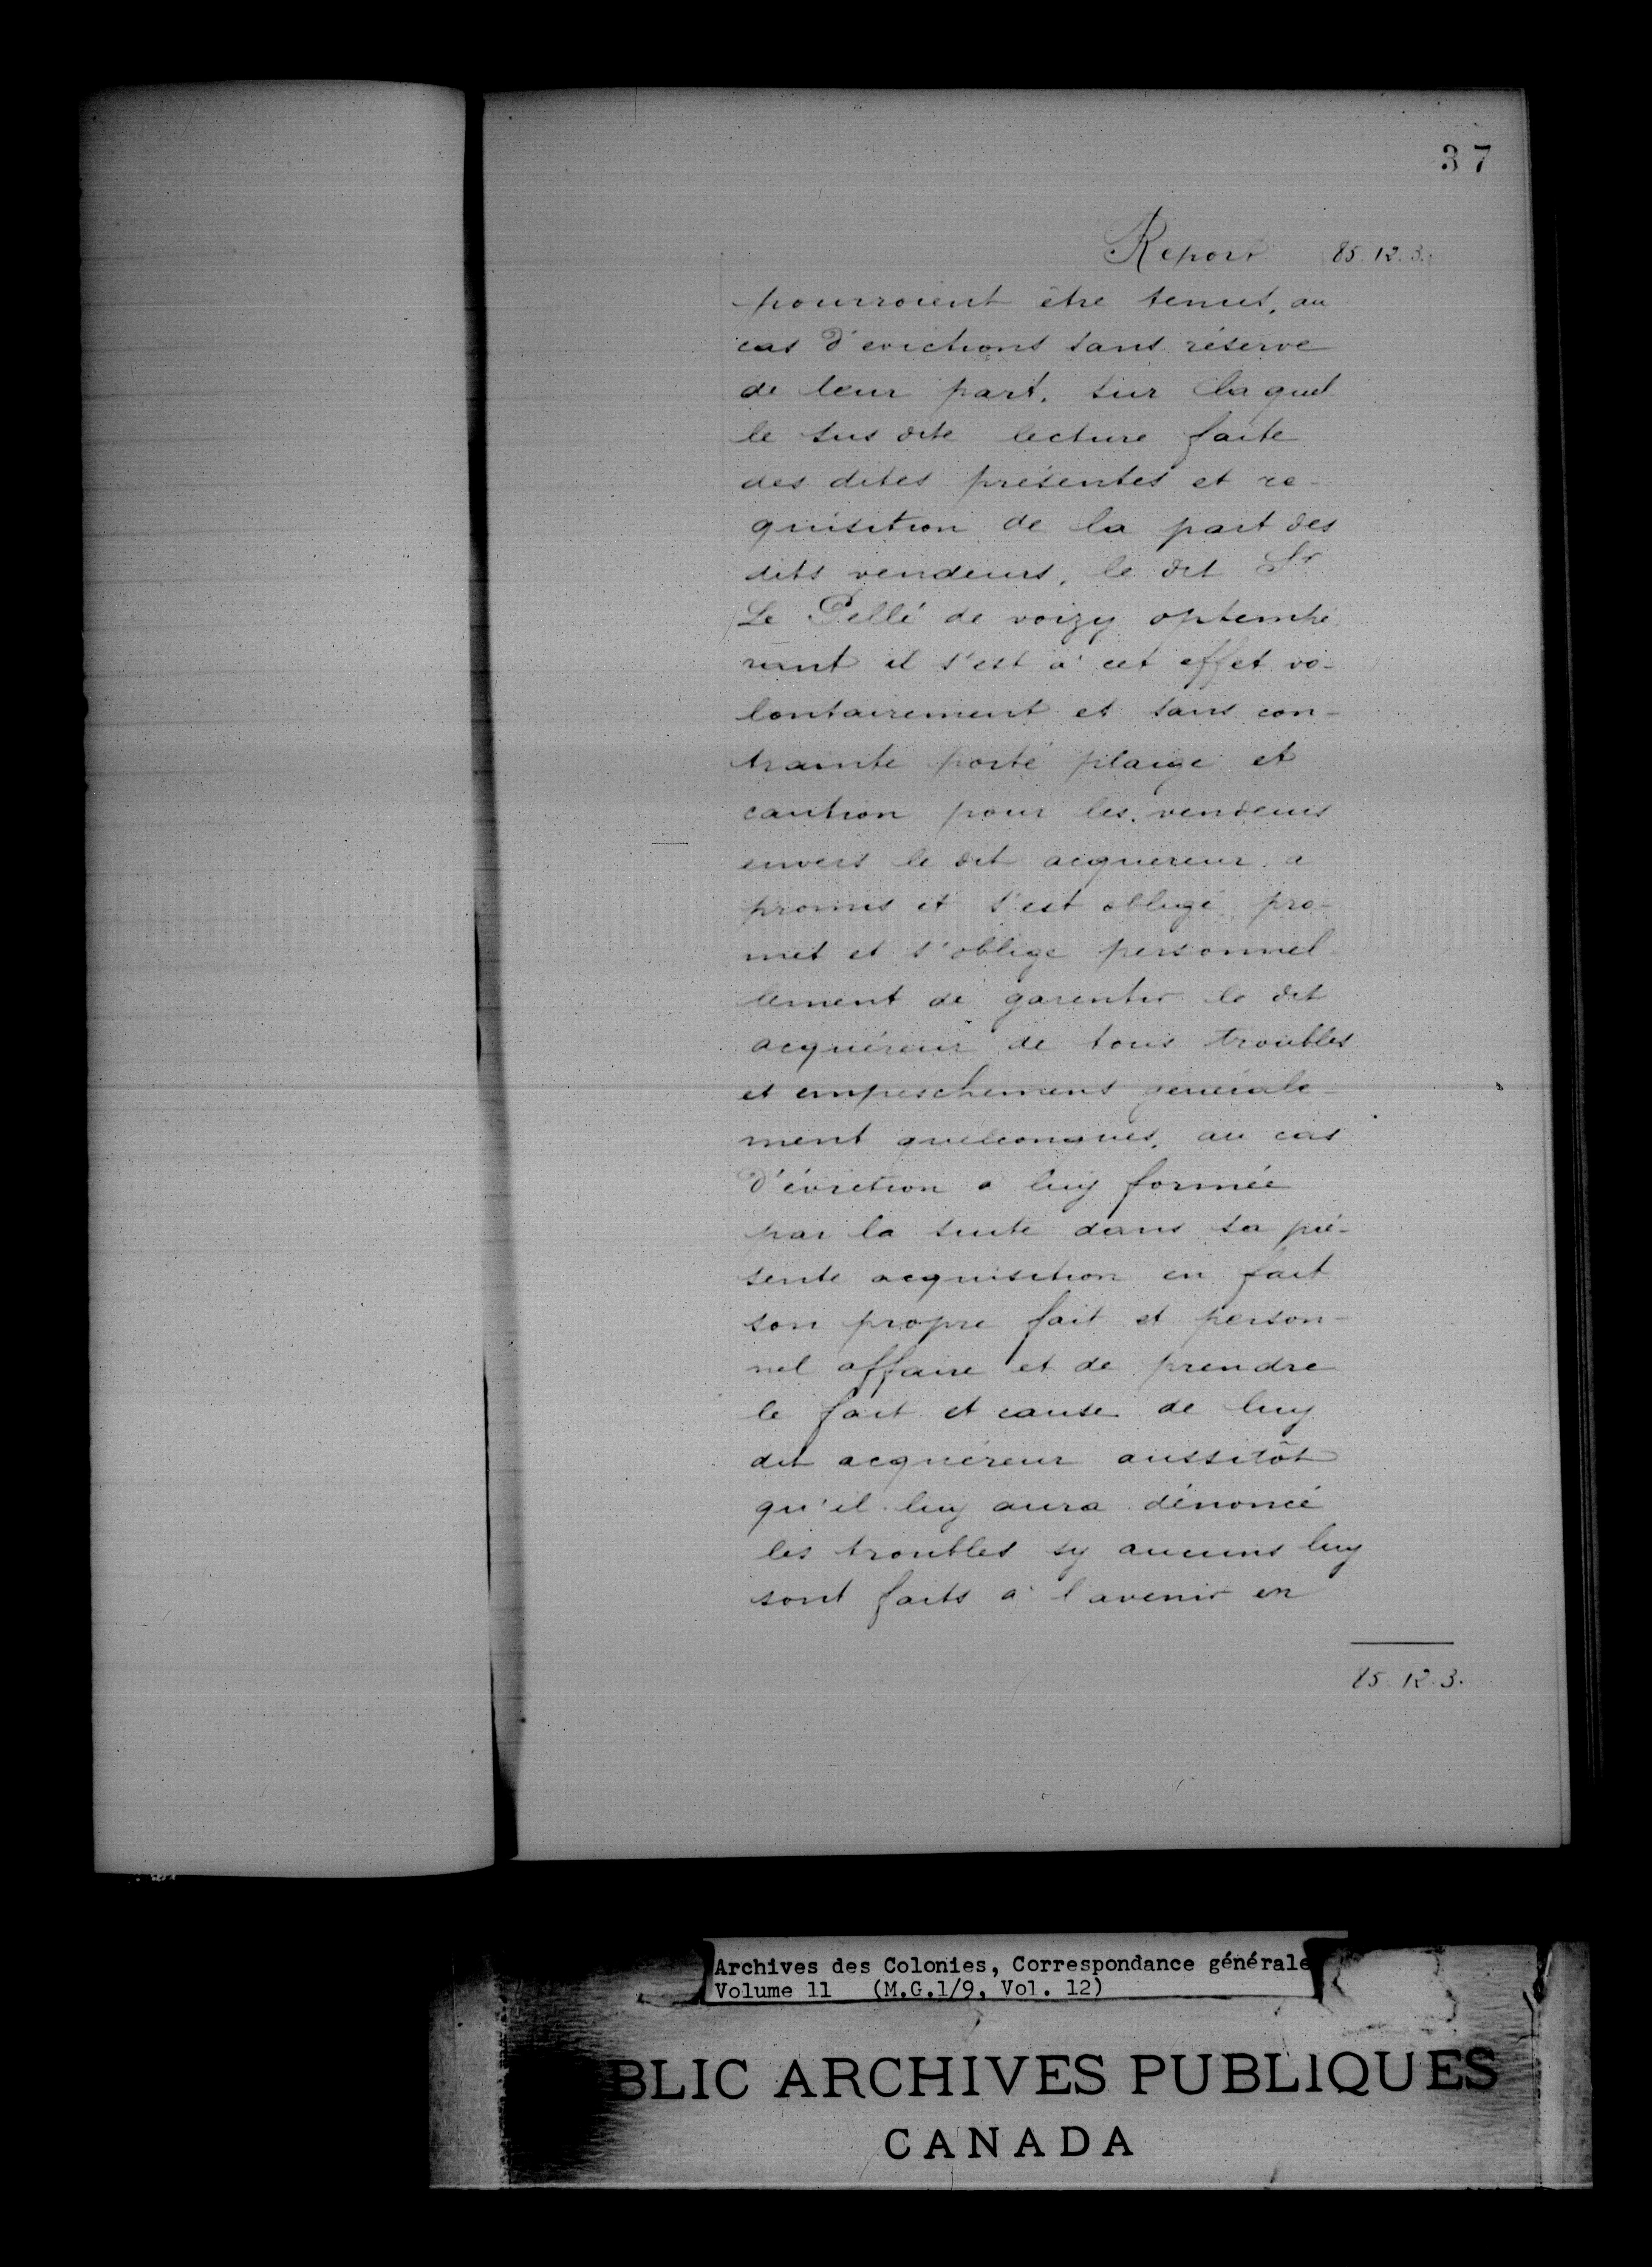 37
Report 85.12.3.
pourroient être tenus, au
cas d'evictions sans réserve
de leur part, sur laquel
le sus dite lecture faite
des dites présentes et re-
quisition de la part des
dits vendeurs, le dit Sr
Le Pellé de voizy optempé
rant il s'est à cet effet vo-
lontairement et sans con-
trainte porté plaige et
caution pour les vendeurs
envers le dit acquereur a
promis et s'est obligé, pro-
met et s'oblige personnel-
lement de garentir le dit
acquéreur de tous troubles
et empeschemens générale-
ment quelconques, au cas
d'éviction a luy formée
par la suite dans sa pré-
sente acquisition en fait
son propre fait et person-
nel affaire et de prendre
le fait et cause de luy
dit acquéreur aussitôt
qu'il luy aura dénoncé
les troubles sy aucuns luy
sont faits à l'avenir en
85.12.3.
Archives des Colonies, Correspondance générale
Volume 11 (M.G.1/9, Vol. 12)
BLIC ARCHIVES PUBLIQUES
CANADA